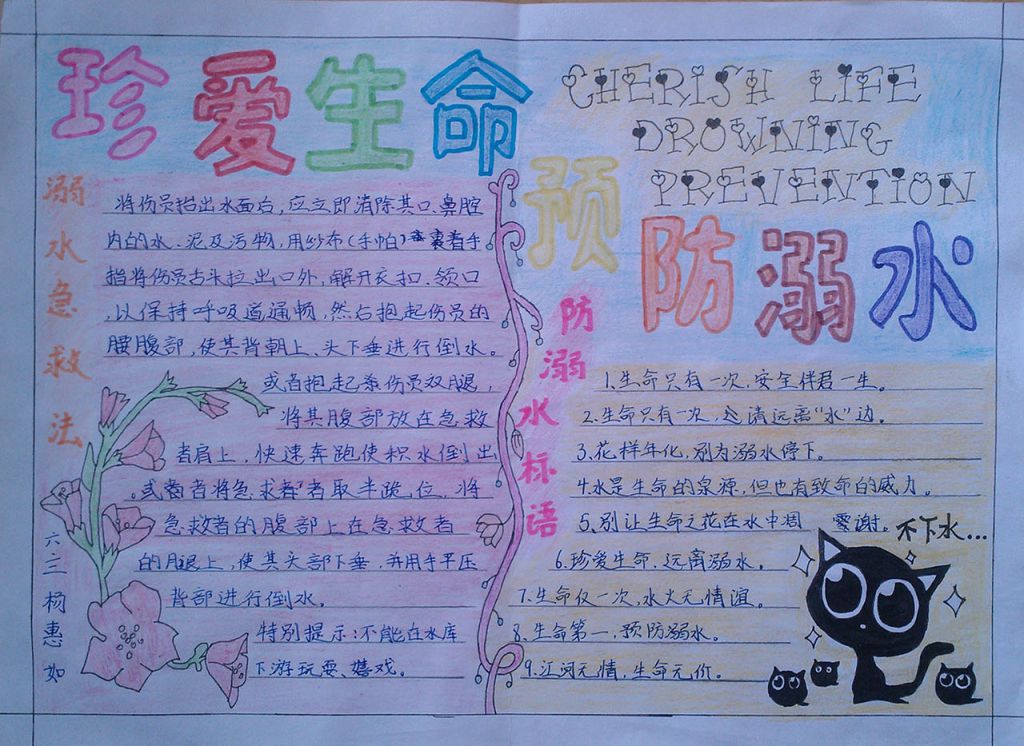 珍爱生命
CHERISH LIFE
DROWNING
PREVENTION
预防溺水
溺水急救法
将伤员抬出水面后，应立即清除其口、鼻腔
内的水、泥及污物，用纱布(手帕)裹着手
指将伤员舌头拉出口外，解开衣扣、领口
，以保持呼吸道通畅，然后抱起伤员的
腰腹部，使其背朝上、头下垂进行倒水。
或者抱起伤员双腿，
将其腹部放在急救
者肩上，快速奔跑使积水倒出
。或者将急求者取半跪位，将
急救者的腹部上在急救者
的腿上，使其头部下垂，并用手平压
背部进行倒水。
特别提示：不能在水库
下游玩耍、嬉戏。
六三杨惠如
防溺水标语
1.生命只有一次，安全伴君一生。
2.生命只有一次，请远离“水”边。
3.花样年化，别为溺水停下。
4.水是生命的泉源，但也有致命的威力。
5.别让生命之花在水中凋零谢。
6.珍爱生命，远离溺水。
7.生命仅一次，水火无情谊。
8.生命第一，预防溺水。
9.江河无情，生命无价。
不下水...